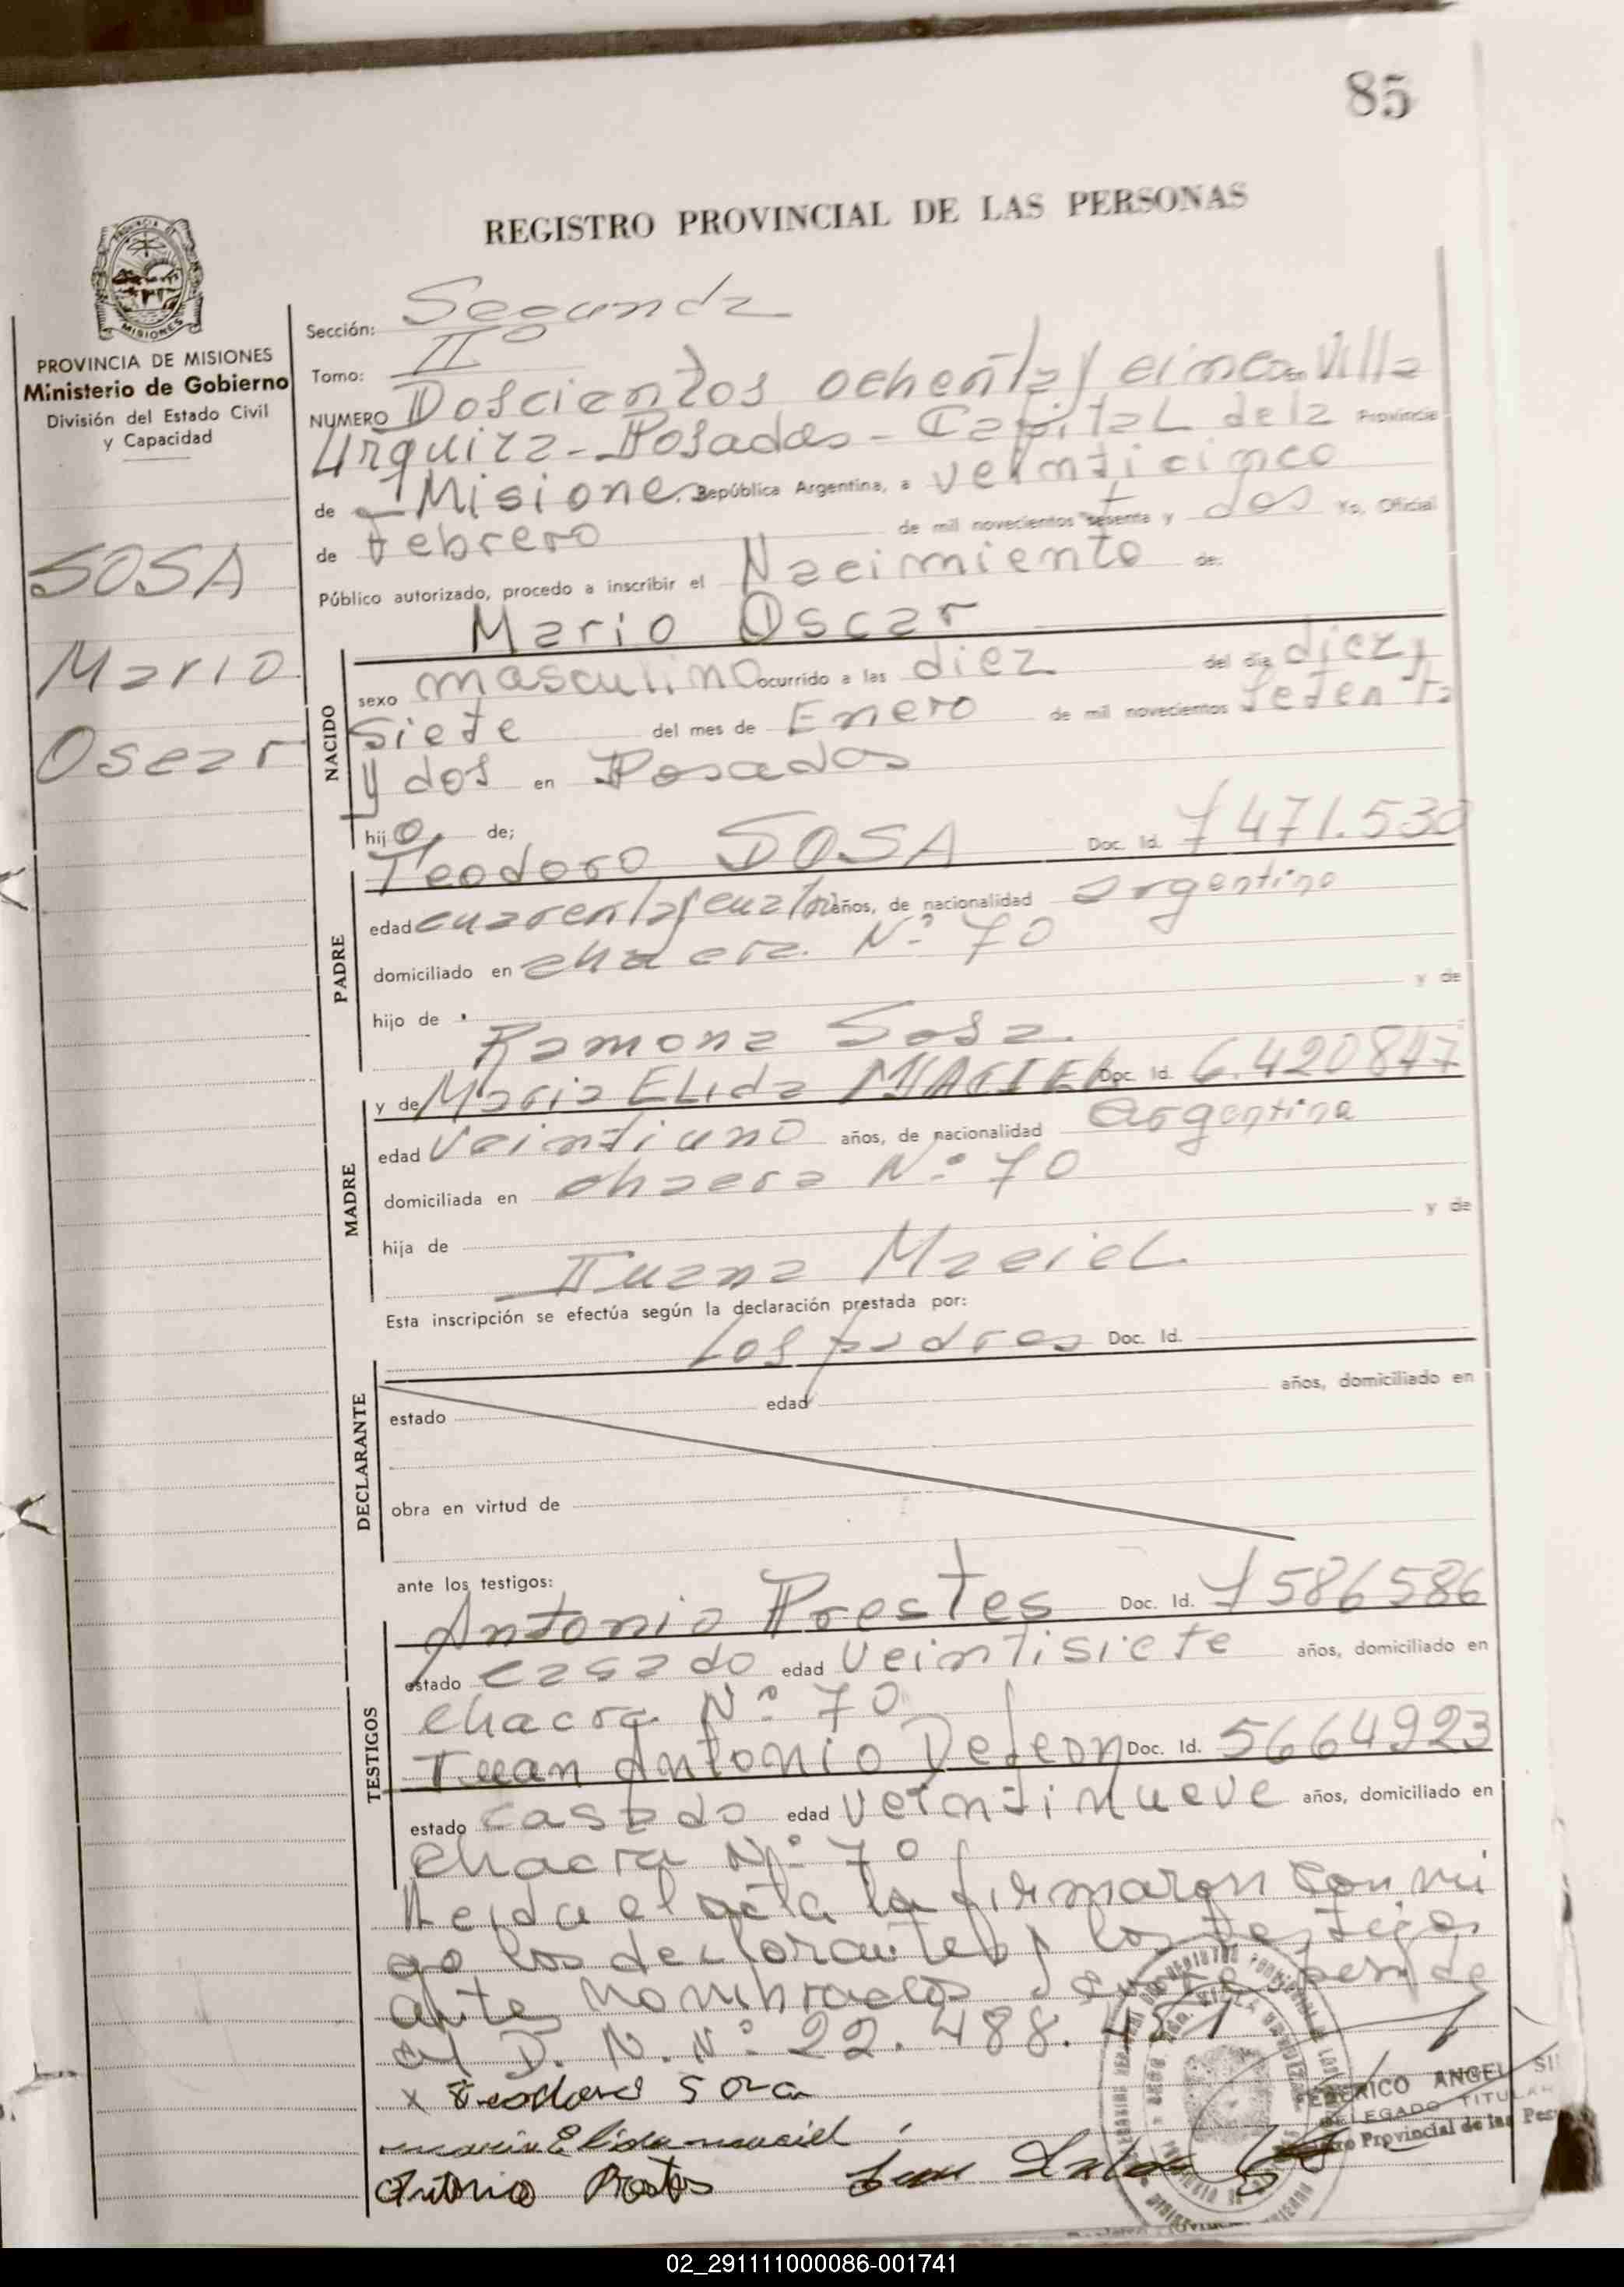 85
REGISTRO PROVINCIAL DE LAS PERSONAS
MISIONES
PROVINCIA DE MISIONES
Ministerio de Gobierno
División del Estado Civil
y Capacidad
SOSA
Mario
Oscar
Sección: Segunda
Tomo: IIº
NUMERO Doscientos ochenta y cinco en Villa
Urquiza - Posadas - Capital de la Provincia
de Misiones, República Argentina, a veinticinco
de Febrero de mil novecientos setenta y dos Yo, Oficial
Público autorizado, procedo a inscribir el Nacimiento de:
Mario Oscar
NACIDO
sexo masculino ocurrido a las diez del día diez y
siete del mes de Enero de mil novecientos setenta
y dos en Posadas
hijo de;
PADRE
Teodoro SOSA Doc. Id. 7471.530
edad cuarenta y cuatro años, de nacionalidad argentina
domiciliado en chacra Nº 70
hijo de y de
Ramona Sosa
MADRE
y de Maria ELida MACIEL Doc. Id. 6.420847
edad veintiuno años, de nacionalidad argentina
domiciliada en chacra Nº 70
hija de y de
Juana Maciel
Esta inscripción se efectúa según la declaración prestada por:
DECLARANTE
Los padres Doc. Id.
estado edad años, domiciliado en
obra en virtud de
ante los testigos:
TESTIGOS
Antonio Prestes Doc. Id. 7586586
estado casado edad veintisiete años, domiciliado en
chacra Nº 70
Juan Antonio Deleon Doc. Id. 5664923
estado casado edad veintinueve años, domiciliado en
chacra Nº 70
Leida el acta la firmaron con mi
go los declarantes y los testigos
ante nombrados
el D. N. Nº 22.488.
x Teodoro Sosa
maria Elida maciel
Antonio Prestes Juan
ANGEL
DELEGADO TITULAR
Provincial de las
02_291111000086-001741